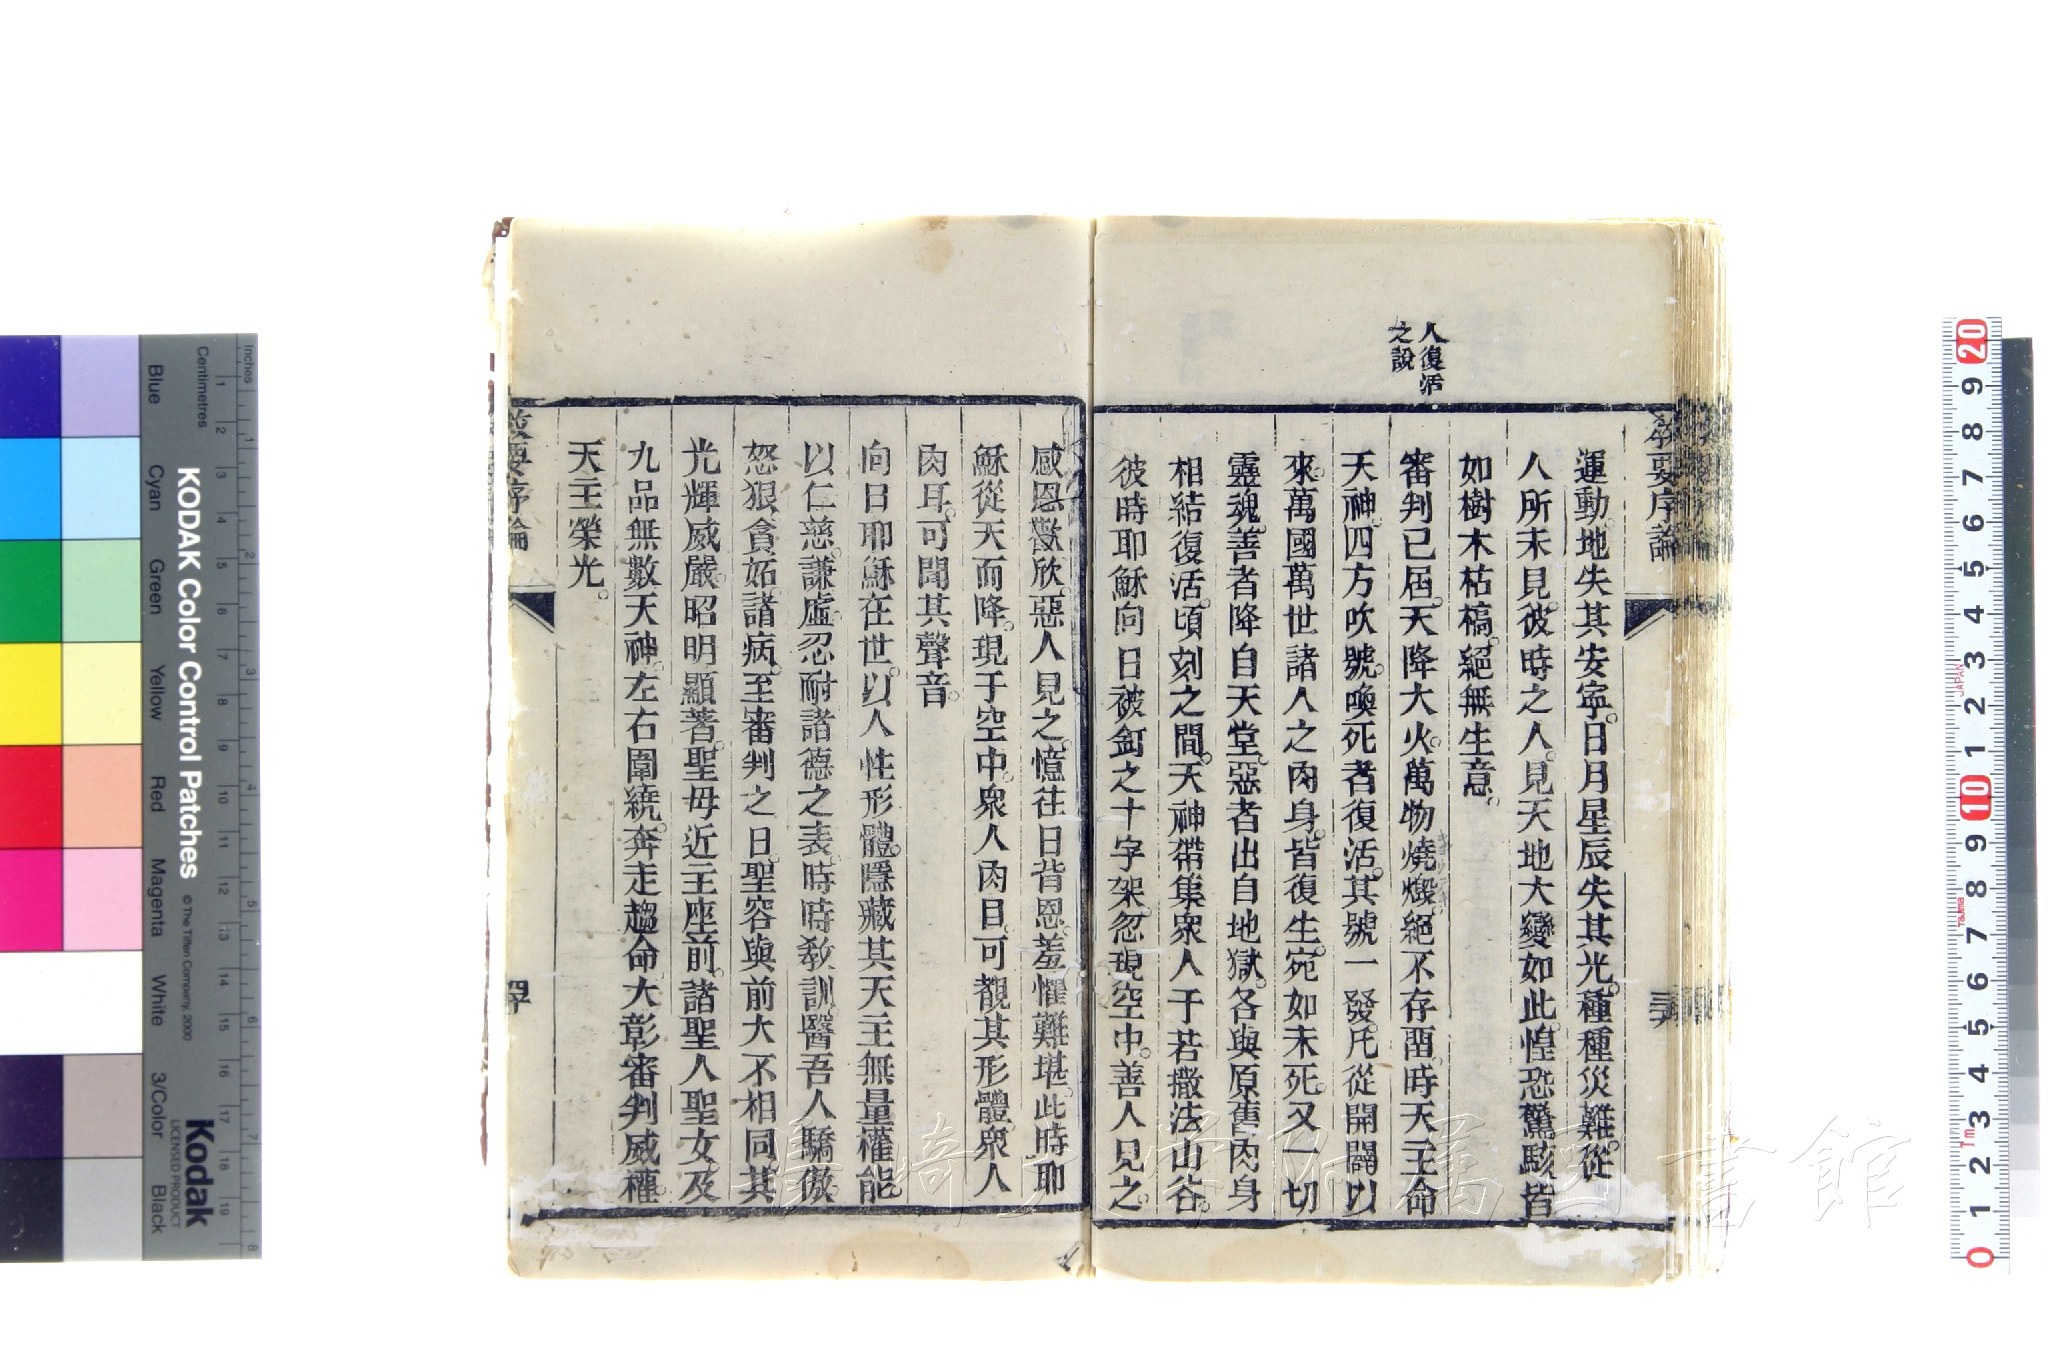 教要序論
三九
人復活
之說
運動。地失其安寧。日月星辰失其光。種種災難。從
人所未見。彼時之人。見天地大變如此。惶恐驚駭。皆
如樹木枯槁。絕無生意。
審判已屆。天降大火。萬物燒燬。絕不存畱。時天主命
天神。四方吹號。喚死者復活。其號一發。凡從開闢以
來。萬國萬世諸人之肉身。皆復生。宛如未死。又一切
靈魂。善者降自天堂。惡者出自地獄。各與原舊肉身
相結復活。頃刻之間。天神帶集衆人于若撒法山谷。
彼時耶穌向日被釘之十字架。忽現空中。善人見之。
感恩歡欣。惡人見之。憶往日背恩。羞懼難堪。此時耶
穌從天而降。現于空中。衆人肉目。可覩其形體。衆人
肉耳。可聞其聲音。
向日耶穌在世。以人性形體。隱藏其天主無量權能。
以仁慈。謙虛。忍耐諸德之表。時時教訓。醫吾人驕傲
怒狠。貪妬。諸病。至審判之日。聖容與前大不相同。其
光輝威嚴。昭明顯著。聖母近主座前。諸聖人聖女。及
九品無數天神。左右圍繞。奔走趨命。大彰審判威權。
天主榮光。
教要序論
四十
長崎大学附属図書館
KODAK Color Control Patches
© The Tiffen Company, 2000
Kodak
LICENSED PRODUCT
Inches
Centimetres
Blue
Cyan
Green
Yellow
Red
Magenta
White
3/Color
Black
1 2 3 4 5 6 7 8 9 10 11 12 13 14 15 16 17 18 19
1 2 3 4 5 6 7 8
20 9 8 7 6 5 4 3 2 1 10 9 8 7 6 5 4 3 2 1 0
JAPAN
Tajima
Tm